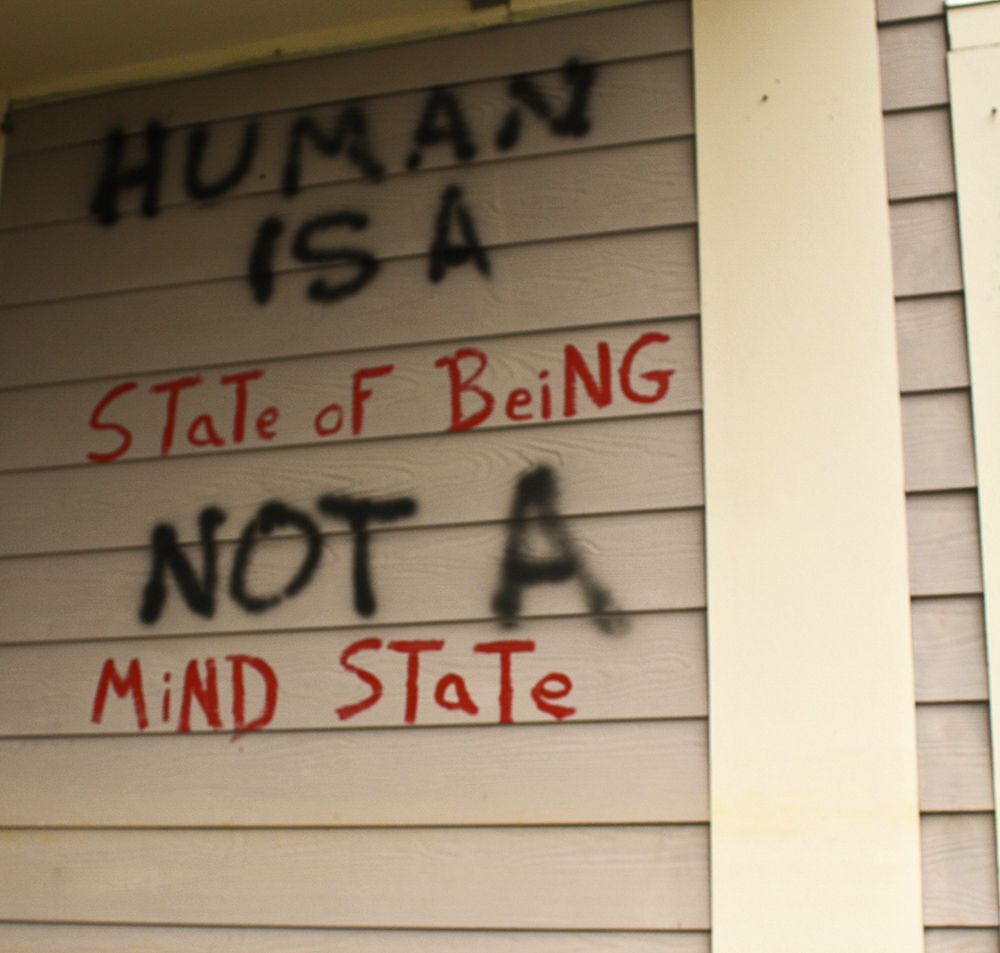 HUMAN
IS A
STaTe oF BeiNG
NOT A
MiND STaTe